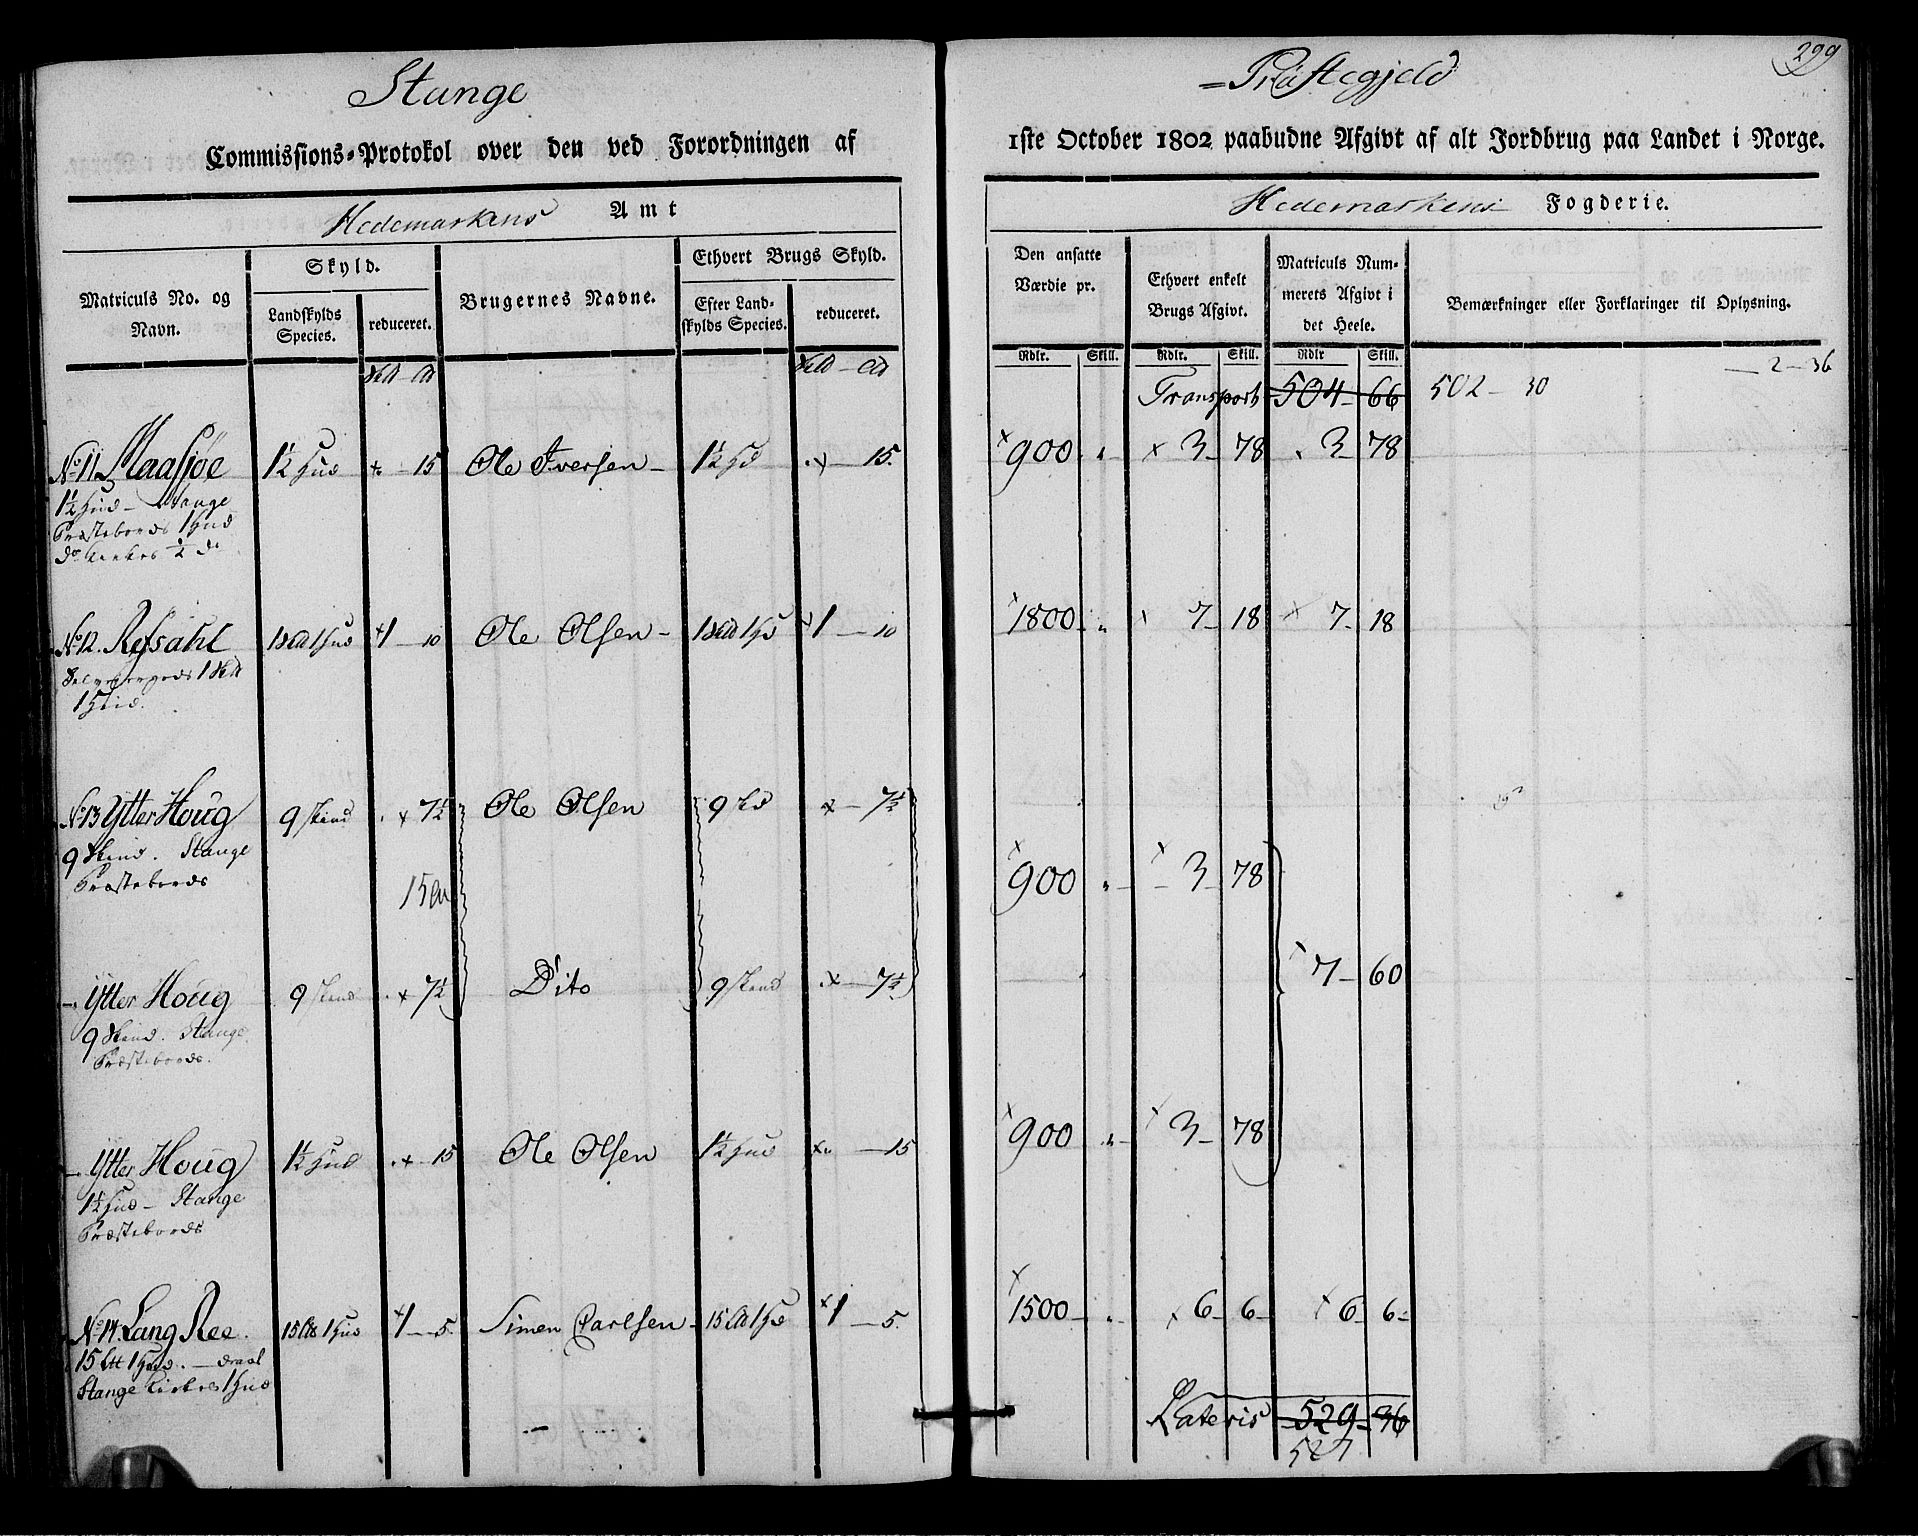 299
Stange
= Præstegjeld
Commissions-Protokol over den ved Forordningen af
1ste October 1802 paabudne Afgivt af alt Jordbrug paa Landet i Norge.
Hedemarkens Amt
Hedemarkens Fogderie.
Matriculs No. og Navn.
Skyld.
Landskylds Species.
reduceret.
Brugernes Navne.
Ethvert Brugs Skyld.
Efter Landskylds Species.
reduceret.
Den ansatte Værdie pr.
Ethvert enkelt Brugs Afgivt.
Matriculs Nummerets Afgivt i det Heele.
Bemærkninger eller Forklaringer til Oplysning.
Rdlr. Skill. Rdlr. Skill. Rdlr Skill.
Transport 504 - 66 502 - 30 — 2 - 36
No 11 Maasjøe 1½ Hud 15 Ole Iversen - 1½ Hd 15. 900 3 - 78 3 - 78
1½ Hud - Stange
Præstebords 1 Hud
do Kirkes ½ do
No 12. Refsahl 1 Hud 1 - 10 Ole Olsen - 1 Hd 1 - 10 1800 7 - 18 7 - 18
1 Hud.
No 13 Ytter Houg 9 Skind 7½ Ole Olsen 9 Skd 7½
9 Skind. Stange
Præstebords
15
900 3 - 78
- Ytter Houg 9 Skind 7½ Dito 9 Skind 7½ 7 - 60
9 Skind. Stange
Præstebords.
- Ytter Houg 1½ Hud 15 Ole Olsen 1½ Hud 15 900 3 - 78
1½ Hud - Stange
Præstebords
No 14 Lang Ree. 15 1 Hud 1 - 5. Simen Carlsen - 15 1 Hd 1 - 5. 1500 6 - 6 6 - 6
15 1 Hud.
Stange Kirkes 1 Hud
Lateris 529 - 36
527